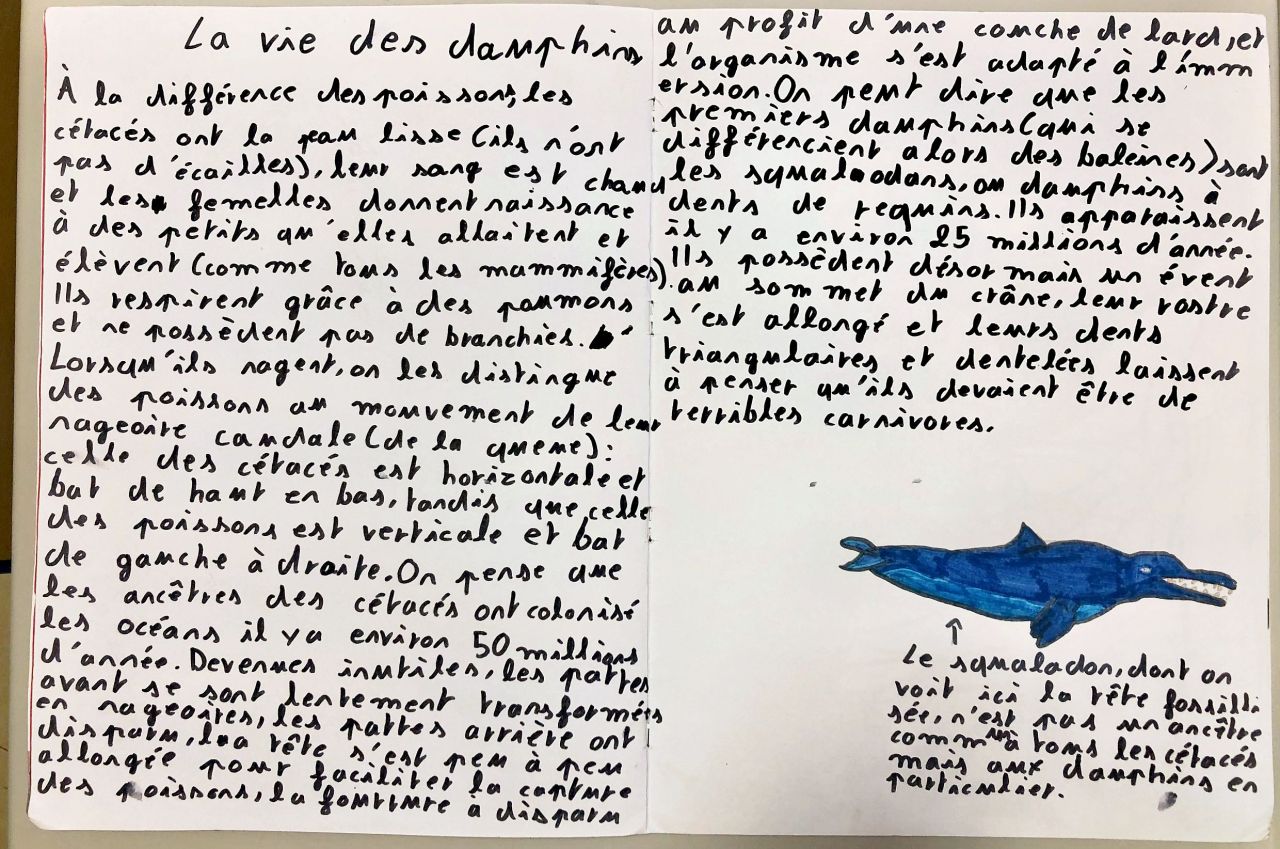 La vie des dauphins
À la différence des poissons, les
cétacés ont la peau lisse (ils n'ont
pas d'écailles), leur sang est chaud
et les femelles donnent naissance
à des petits qu'elles allaitent et
élèvent (comme tous les mammifères).
Ils respirent grâce à des poumons
et ne possèdent pas de branchies.
Lorsqu'ils nagent, on les distingue
des poissons au mouvement de leur
nageoire caudale (de la queue) :
celle des cétacés est horizontale et
bat de haut en bas, tandis que celle
des poissons est verticale et bat
de gauche à droite. On pense que
les ancêtres des cétacés ont colonisé
les océans il y a environ 50 millions
d'année. Devenues inutiles, les pattes
avant se sont lentement transformées
en nageoires, les pattes arrière ont
disparu, la tête s'est peu à peu
allongée pour faciliter la capture
des poissons, la fourrure a disparu
au profit d'une couche de lard, et
l'organisme s'est adapté à l'imm
ersion. On peut dire que les
premiers dauphins (qui se
différencient alors des baleines) sont
les squalodons, ou dauphins à
dents de requins. Ils apparaissent
il y a environ 25 millions d'année.
Ils possèdent désormais un évent
au sommet du crâne, leur rostre
s'est allongé et leurs dents
triangulaires et dentelées laissent
à penser qu'ils devaient être de
terribles carnivores.
Le squalodon, dont on
voit ici la tête fossili
sée, n'est pas un ancêtre
commun à tous les cétacés
mais aux dauphins en
particulier.